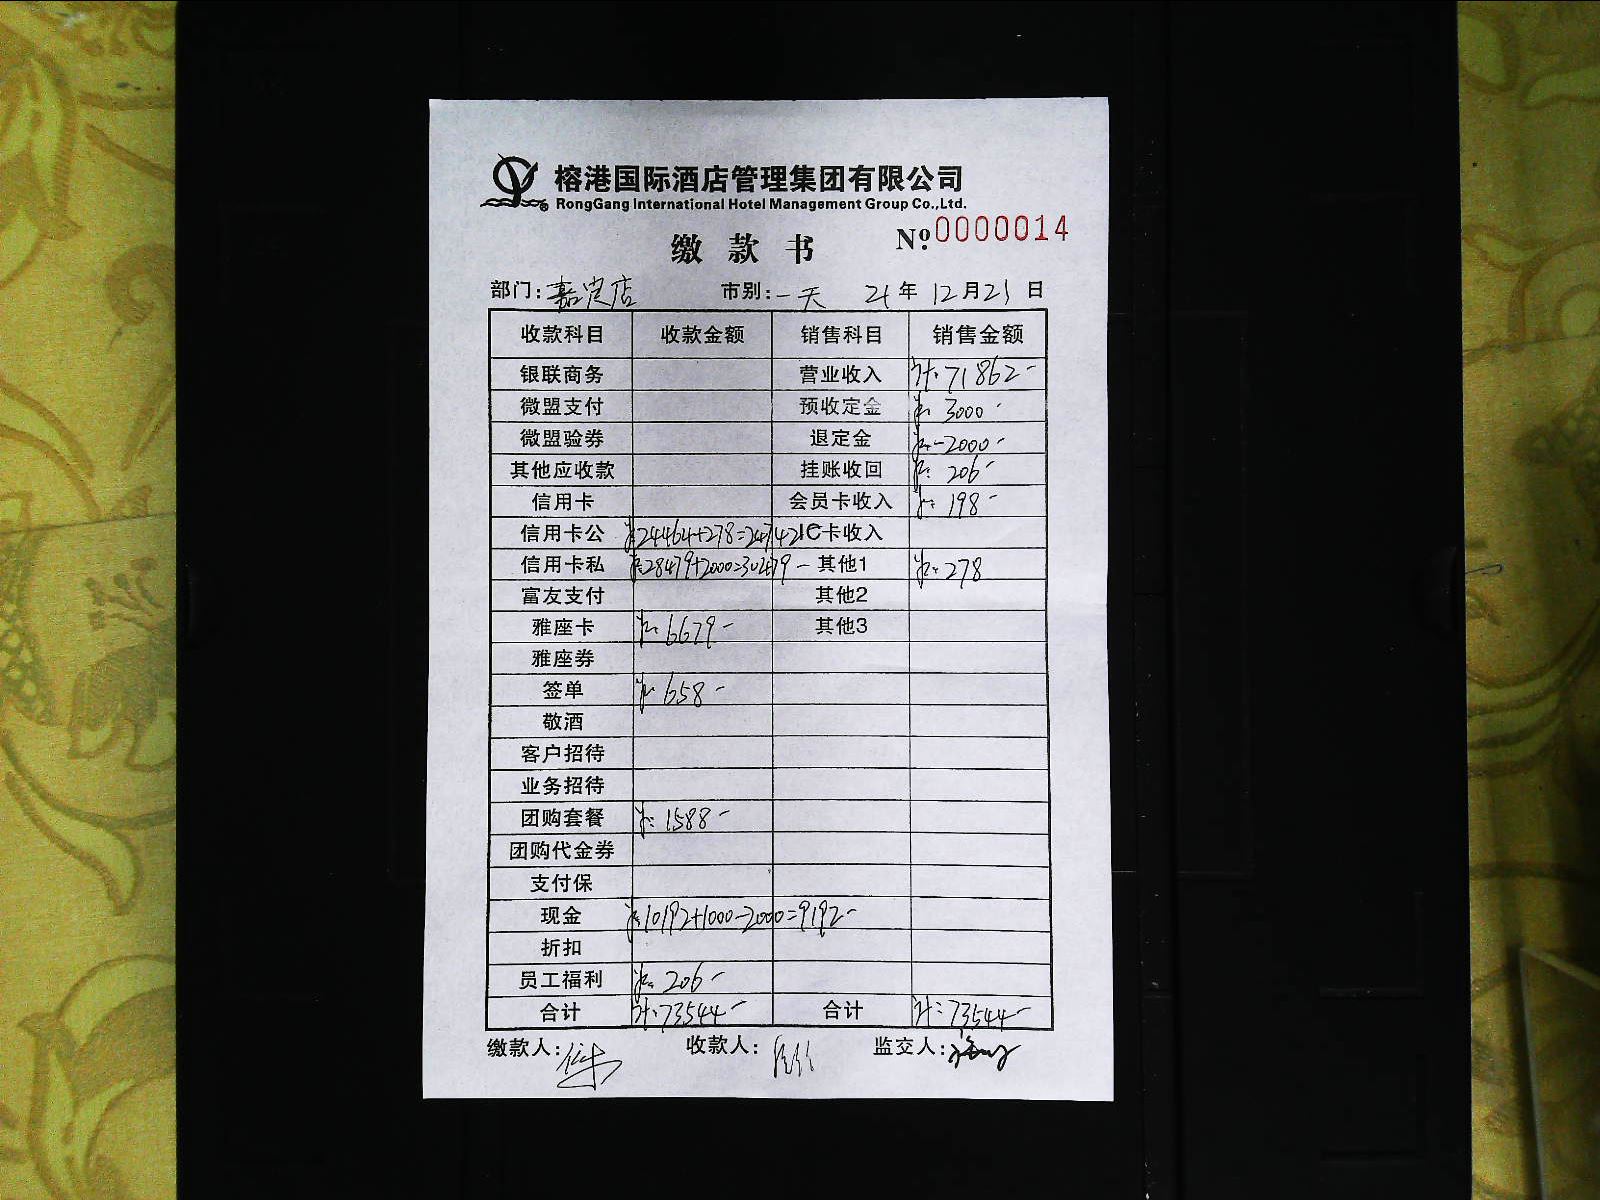 榕港国际酒店管理集团有限公司
RongGang International Hotel Management Group Co.,Ltd.
缴款书 №0000014
部门: 店 市别: 一天 21年12月21日
收款科目 收款金额 销售科目 销售金额
银联商务 营业收入 计: 71862-
微盟支付 预收定金 3000-
微盟验券 退定金 -2000-
其他应收款 挂账收回 206-
信用卡 会员卡收入 198-
信用卡公 24464+278=24742 IC卡收入
信用卡私 28479+2000=30479- 其他1 278
富友支付 其他2
雅座卡 6679- 其他3
雅座券
签单 658-
敬酒
客户招待
业务招待
团购套餐 1588-
团购代金券
支付保
现金 10192+1000-2000=9192-
折扣
员工福利 206-
合计 计: 73544- 合计 计: 73544-
缴款人: 收款人: 监交人: